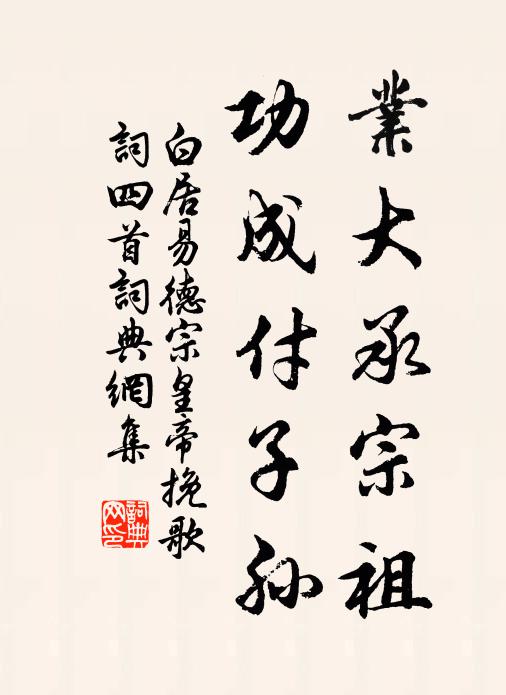 業大承宗祖
功成付子孫
白居易德宗皇帝挽歌
詞四首詞典網集
詞典
网印